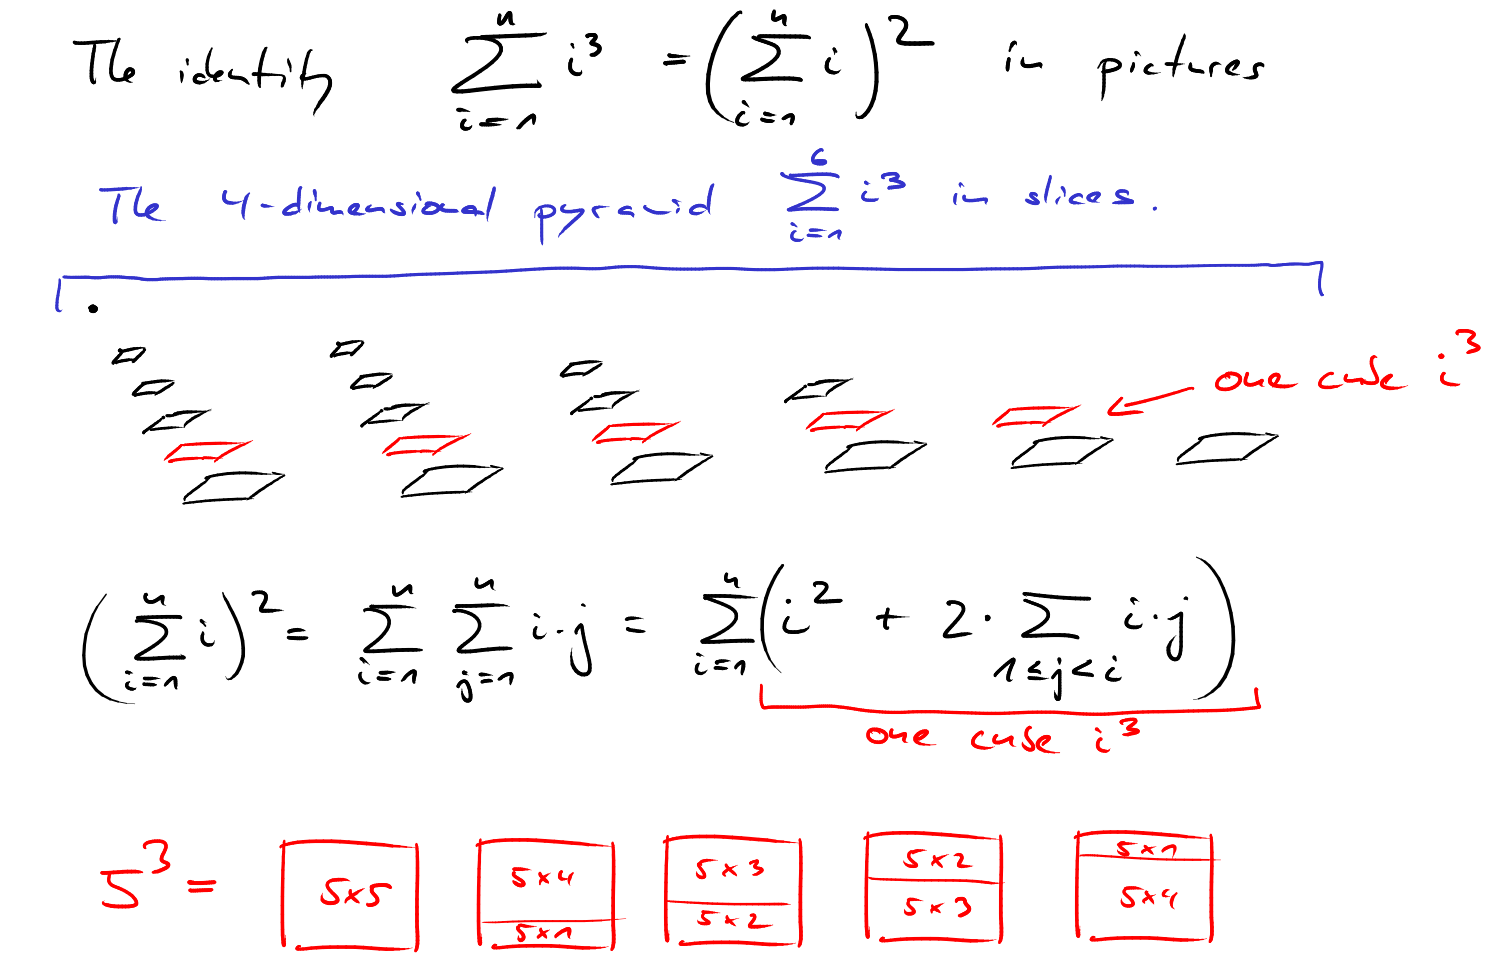 The identity \sum_{i=1}^{n} i^3 = \left( \sum_{i=1}^{n} i \right)^2 in pictures
The 4-dimensional pyramid \sum_{i=1}^{6} i^3 in slices.
one cube i^3
\left( \sum_{i=1}^{n} i \right)^2 = \sum_{i=1}^{n} \sum_{j=1}^{n} i \cdot j = \sum_{i=1}^{n} \left( i^2 + 2 \cdot \sum_{1 \le j < i} i \cdot j \right)
one cube i^3
5^3 =
5×5
5×4
5×1
5×3
5×2
5×2
5×3
5×1
5×4